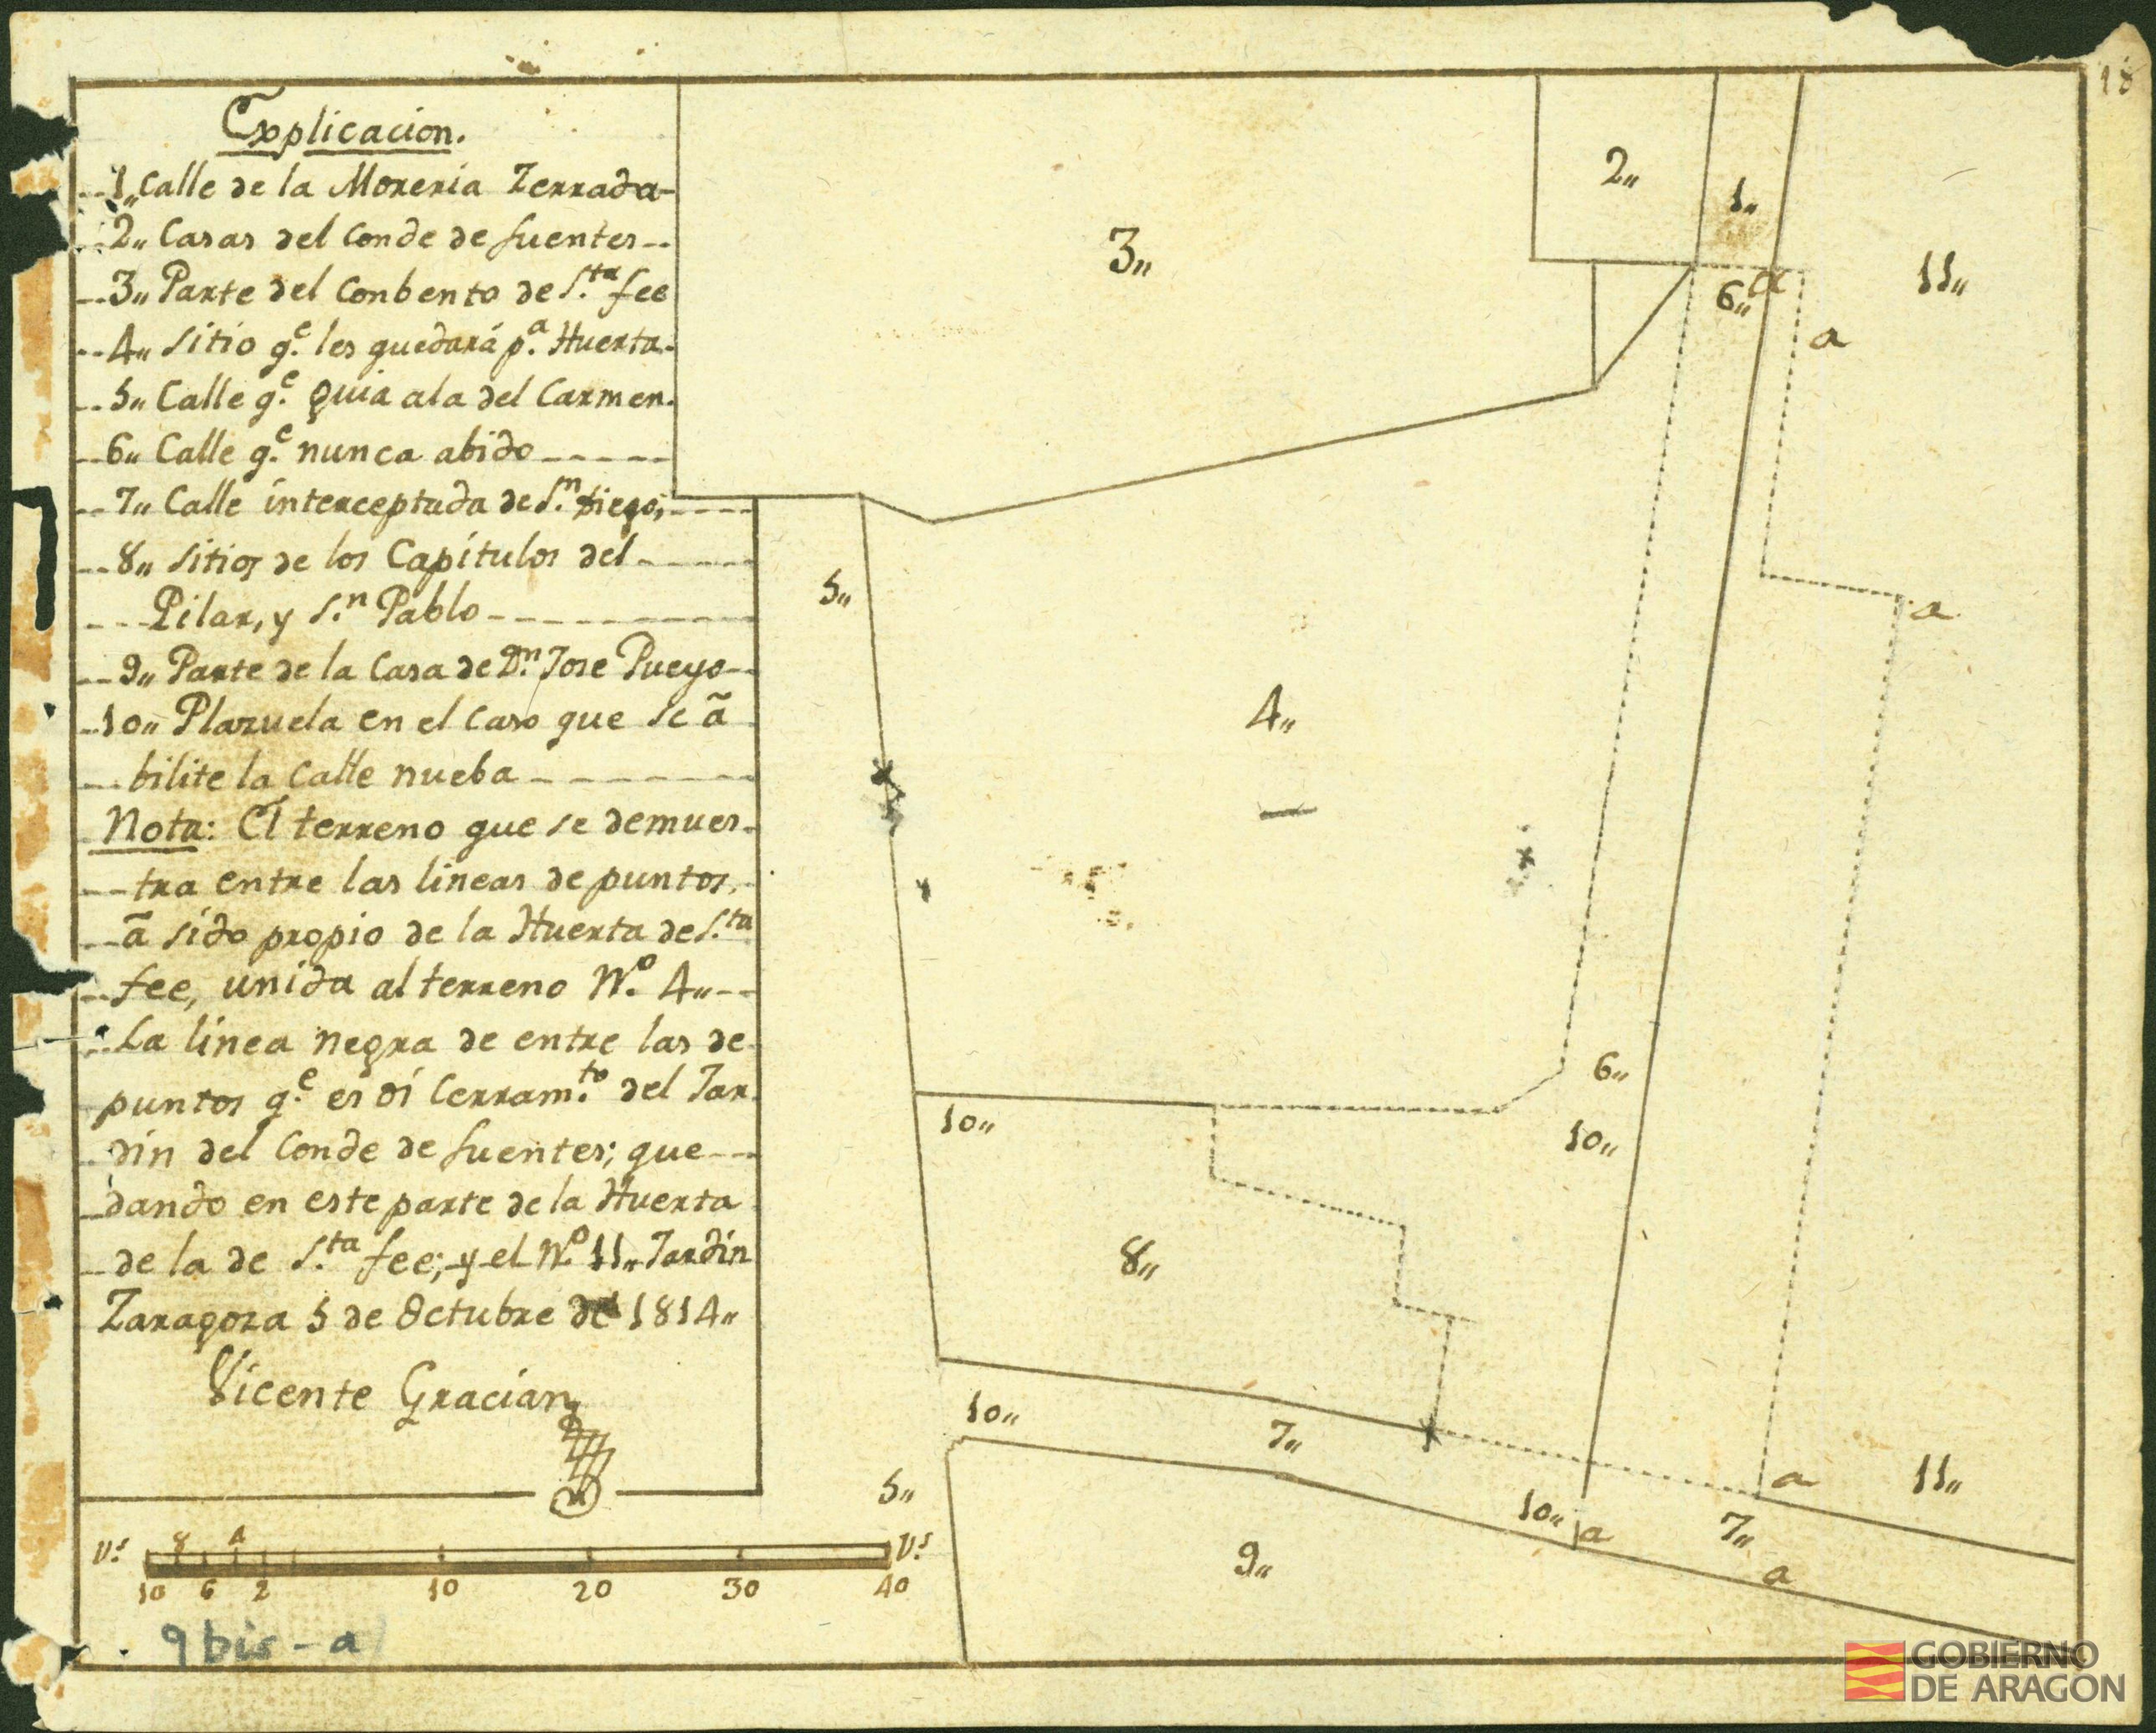 Explicacion.
1„ Calle de la Moreria Zerrada
2„ Casas del Conde de fuentes
3„ Parte del Conbento de S.ta fee
4„ sitio q.e les quedará p.a Huerta
5„ Calle q.e Guia ala del Carmen.
6„ Calle q.e nunca abido
7„ Calle interceptada de S.n Diego;
8„ sitios de los Capítulos del
Pilar, y S.n Pablo
9„ Parte de la Casa de D.n Jose Pueyo
10„ Plazuela en el Caso que se ã
bilite la Calle nueba
Nota: El terreno que se demues-
tra entre las lineas de puntos,
ã sido propio de la Huerta de S.ta
fee, unida al terreno N.o 4„
La linea negra de entre las de
puntos q.e es oi Cerram.to del Jar
din del Conde de fuentes; que
dando en este parte de la Huerta
de la de S.ta fee; y el N.o 11„ Jardin
Zaragoza 5 de Octubre de 1814„
Vicente Gracian
V.s 8 4 V.s
10 6 2 10 20 30 40
9 bis - a
18
2„
1„
3„
11„
6„ a
a
5„
a
4„
6„
10„
10„
8„
10„
7„
a
11„
5„
10„
a
7„
9„
a
GOBIERNO
DE ARAGON